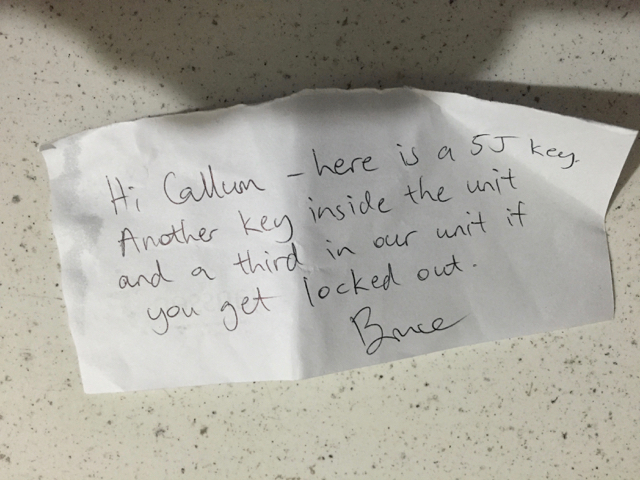 Hi Callum - here is a 5J key.
Another key inside the unit
and a third in our unit if
you get locked out.
Bruce